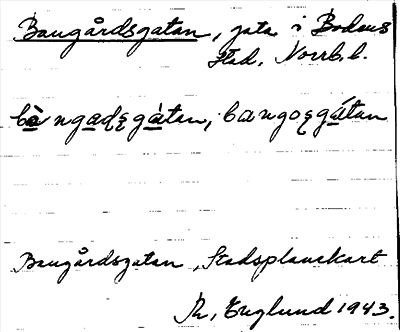 Bangårdsgatan, gata i Bodens
stad, Norrb. l.
bàngadsgàtan, bangosgátan
Bangårdsgatan, Stadsplanekart
Th. Englund 1943.